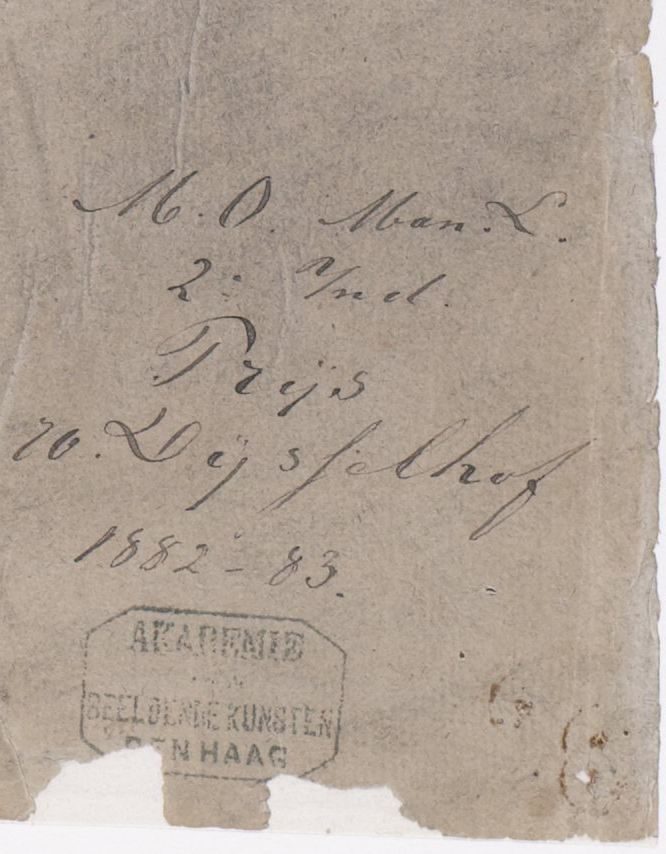 M. O. Man. L.
2e Ind.
Prijs
Dijsselhof
1882-83.
AKADEMIE
BEELDENDE KUNSTEN
DEN HAAG